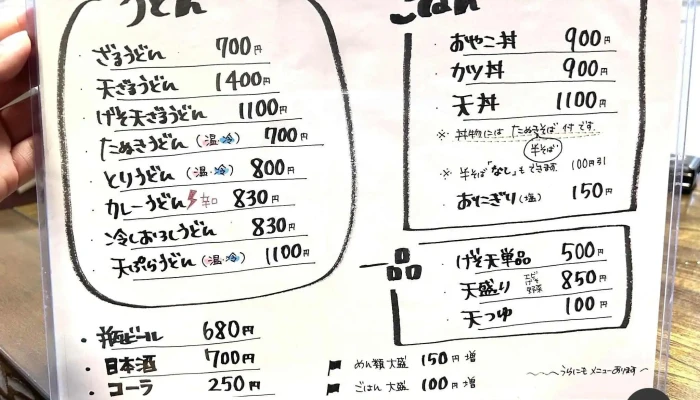 うどん
ざるうどん 700円
天ざるうどん 1400円
げそ天ざるうどん 1100円
たぬきうどん(温・冷) 700円
とりうどん(温・冷) 800円
カレーうどん 辛口 830円
冷しおろしうどん 830円
天ぷらうどん(温・冷) 1100円
・瓶ビール 680円
・日本酒 700円
・コーラ 250円
ごはん
・おやこ丼 900円
・カツ丼 900円
・天丼 1100円
※丼物には たぬきそば 付です
半そば
※半そば「なし」もできます 100円引
・おにぎり(塩) 150円
一品
・げそ天単品 500円
・天盛り 850円
・天つゆ 100円
めん類大盛 150円増
ごはん大盛 100円増
うらにもメニューあります